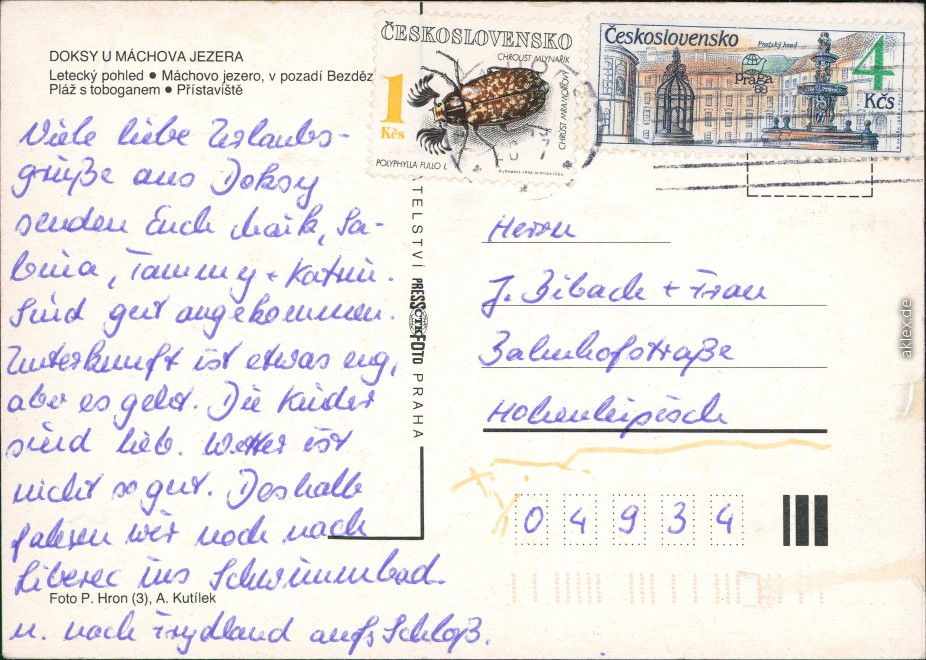 DOKSY U MÁCHOVA JEZERA
Letecký pohled ● Máchovo jezero, v pozadí Bezděz
Pláž s toboganem ● Přístaviště
Viele liebe Urlaubs-
grüße aus Doksy
senden Euch Maik, Sa-
bina, Tammy + Katrin.
Sind gut angekommen.
Unterkunft ist etwas eng,
aber es geht. Die Kinder
sind lieb. Wetter ist
nicht so gut. Deshalb
fahren wir noch nach
Liberec ins Schwimmbad
u. nach Frydland aufs Schloß.
Foto P. Hron (3), A. Kutílek
TELSTVÍ PRESSFOTO PRAHA
ČTK
ČESKOSLOVENSKO
CHROUST MLYNAŘÍK
CHRUST MRAMOROVÝ
1
Kčs
POLYPHYLLA FULLO L.
Československo
Pražský hrad
praga
88
4
Kčs
Herrn
J. Bibach + Frau
Bahnhofstraße
Hohenleipisch
0 4 9 3 4
aklex.de